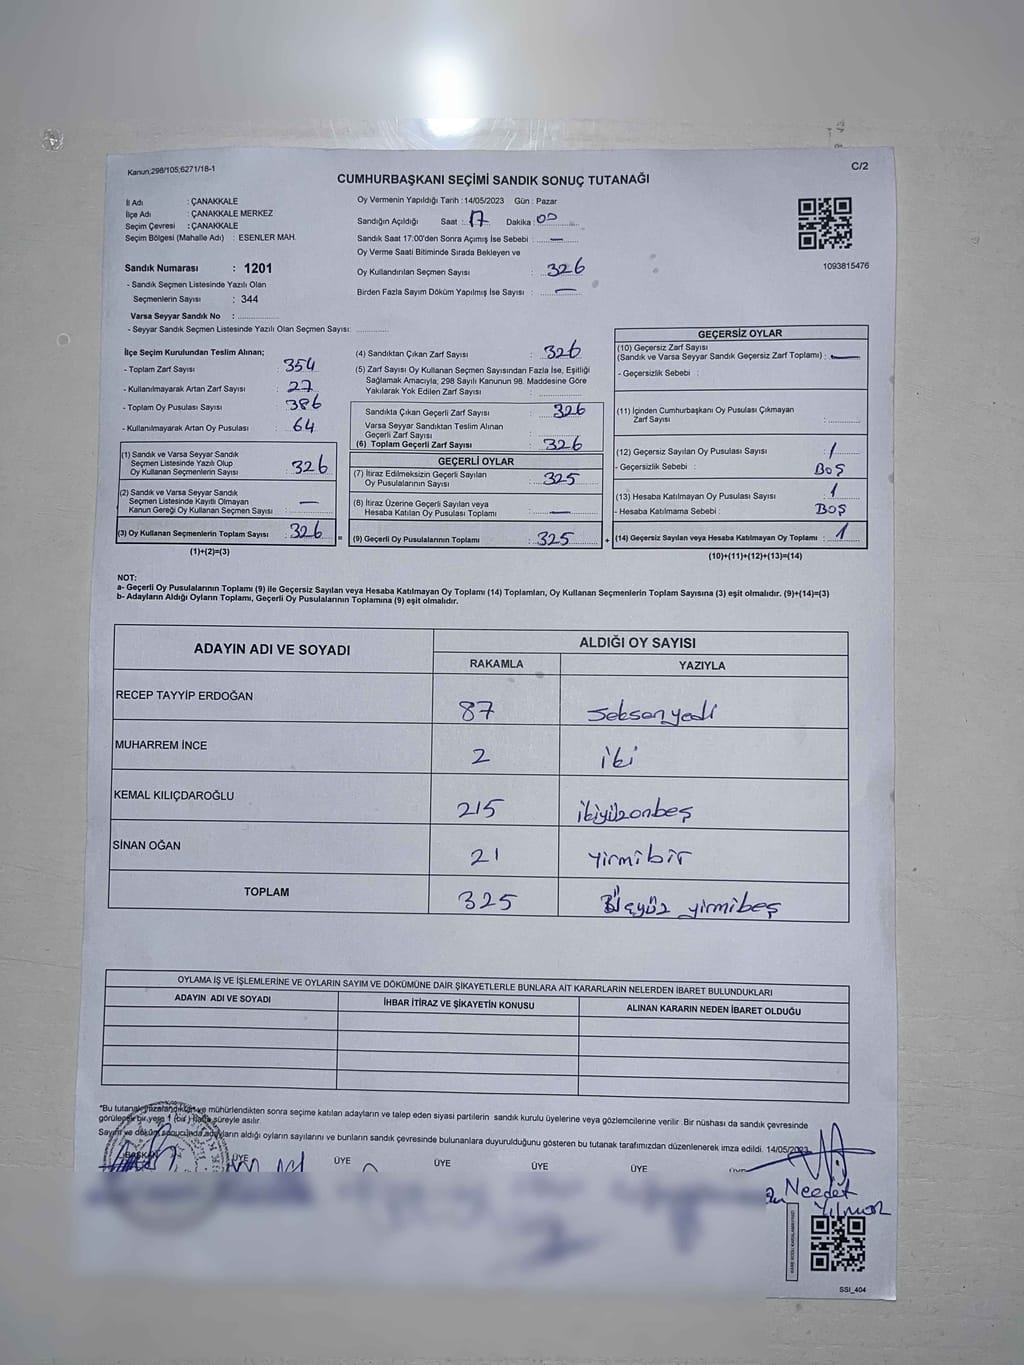 Kanun;298/105;6271/18-1
C/2
CUMHURBAŞKANI SEÇİMİ SANDIK SONUÇ TUTANAĞI
İl Adı : ÇANAKKALE
İlçe Adı : ÇANAKKALE MERKEZ
Seçim Çevresi : ÇANAKKALE
Seçim Bölgesi (Mahalle Adı) : ESENLER MAH.
Oy Vermenin Yapıldığı Tarih :14/05/2023 Gün : Pazar
Sandığın Açıldığı Saat : 17 Dakika : 00
Sandık Saat 17:00'den Sonra Açımış İse Sebebi : —
Oy Verme Saati Bitiminde Sırada Bekleyen ve
Oy Kullandırılan Seçmen Sayısı : 326
Birden Fazla Sayım Döküm Yapılmış İse Sayısı : —
1093815476
Sandık Numarası : 1201
- Sandık Seçmen Listesinde Yazılı Olan
Seçmenlerin Sayısı : 344
Varsa Seyyar Sandık No :
- Seyyar Sandık Seçmen Listesinde Yazılı Olan Seçmen Sayısı:
İlçe Seçim Kurulundan Teslim Alınan;
- Toplam Zarf Sayısı : 354
- Kullanılmayarak Artan Zarf Sayısı : 27
- Toplam Oy Pusulası Sayısı : 386
- Kullanılmayarak Artan Oy Pusulası : 64
(1) Sandık ve Varsa Seyyar Sandık
Seçmen Listesinde Yazılı Olup
Oy Kullanan Seçmenlerin Sayısı : 326
(2) Sandık ve Varsa Seyyar Sandık
Seçmen Listesinde Kayıtlı Olmayan
Kanun Gereği Oy Kullanan Seçmen Sayısı : —
(3) Oy Kullanan Seçmenlerin Toplam Sayısı : 326
(1)+(2)=(3)
(4) Sandıktan Çıkan Zarf Sayısı : 326
(5) Zarf Sayısı Oy Kullanan Seçmen Sayısından Fazla İse, Eşitliği
Sağlamak Amacıyla, 298 Sayılı Kanunun 98. Maddesine Göre
Yakılarak Yok Edilen Zarf Sayısı :
Sandıkta Çıkan Geçerli Zarf Sayısı : 326
Varsa Seyyar Sandıktan Teslim Alınan
Geçerli Zarf Sayısı :
(6) Toplam Geçerli Zarf Sayısı : 326
GEÇERLİ OYLAR
(7) İtiraz Edilmeksizin Geçerli Sayılan
Oy Pusulalarının Sayısı : 325
(8) İtiraz Üzerine Geçerli Sayılan veya
Hesaba Katılan Oy Pusulası Toplamı : —
(9) Geçerli Oy Pusulalarının Toplamı : 325
GEÇERSİZ OYLAR
(10) Geçersiz Zarf Sayısı
(Sandık ve Varsa Seyyar Sandık Geçersiz Zarf Toplamı) : —
- Geçersizlik Sebebi :
(11) İçinden Cumhurbaşkanı Oy Pusulası Çıkmayan
Zarf Sayısı :
(12) Geçersiz Sayılan Oy Pusulası Sayısı : 1
- Geçersizlik Sebebi : BOŞ
(13) Hesaba Katılmayan Oy Pusulası Sayısı : 1
- Hesaba Katılmama Sebebi : BOŞ
(14) Geçersiz Sayılan veya Hesaba Katılmayan Oy Toplamı : 1
(10)+(11)+(12)+(13)=(14)
NOT:
a- Geçerli Oy Pusulalarının Toplamı (9) ile Geçersiz Sayılan veya Hesaba Katılmayan Oy Toplamı (14) Toplamları, Oy Kullanan Seçmenlerin Toplam Sayısına (3) eşit olmalıdır. (9)+(14)=(3)
b- Adayların Aldığı Oyların Toplamı, Geçerli Oy Pusulalarının Toplamına (9) eşit olmalıdır.
ADAYIN ADI VE SOYADI
ALDIĞI OY SAYISI
RAKAMLA YAZIYLA
RECEP TAYYİP ERDOĞAN 87 seksenyedi
MUHARREM İNCE 2 iki
KEMAL KILIÇDAROĞLU 215 ikiyüzonbeş
SİNAN OĞAN 21 yirmibir
TOPLAM 325 üçyüz yirmibeş
OYLAMA İŞ VE İŞLEMLERİNE VE OYLARIN SAYIM VE DÖKÜMÜNE DAİR ŞİKAYETLERLE BUNLARA AİT KARARLARIN NELERDEN İBARET BULUNDUKLARI
ADAYIN ADI VE SOYADI İHBAR İTİRAZ VE ŞİKAYETİN KONUSU ALINAN KARARIN NEDEN İBARET OLDUĞU
*Bu tutanak imzalandıktan ve mühürlendikten sonra seçime katılan adayların ve talep eden siyasi partilerin sandık kurulu üyelerine veya gözlemcilerine verilir. Bir nüshası da sandık çevresinde
görülecek bir yere 1 (bir) hafta süreyle asılır.
Sayım ve döküm sonucunda adayların aldığı oyların sayılarını ve bunların sandık çevresinde bulunanlara duyurulduğunu gösteren bu tutanak tarafımızdan düzenlenerek imza edildi. 14/05/2023
BAŞKAN ÜYE ÜYE ÜYE ÜYE ÜYE
Necdet
Yılmaz
SSI_404